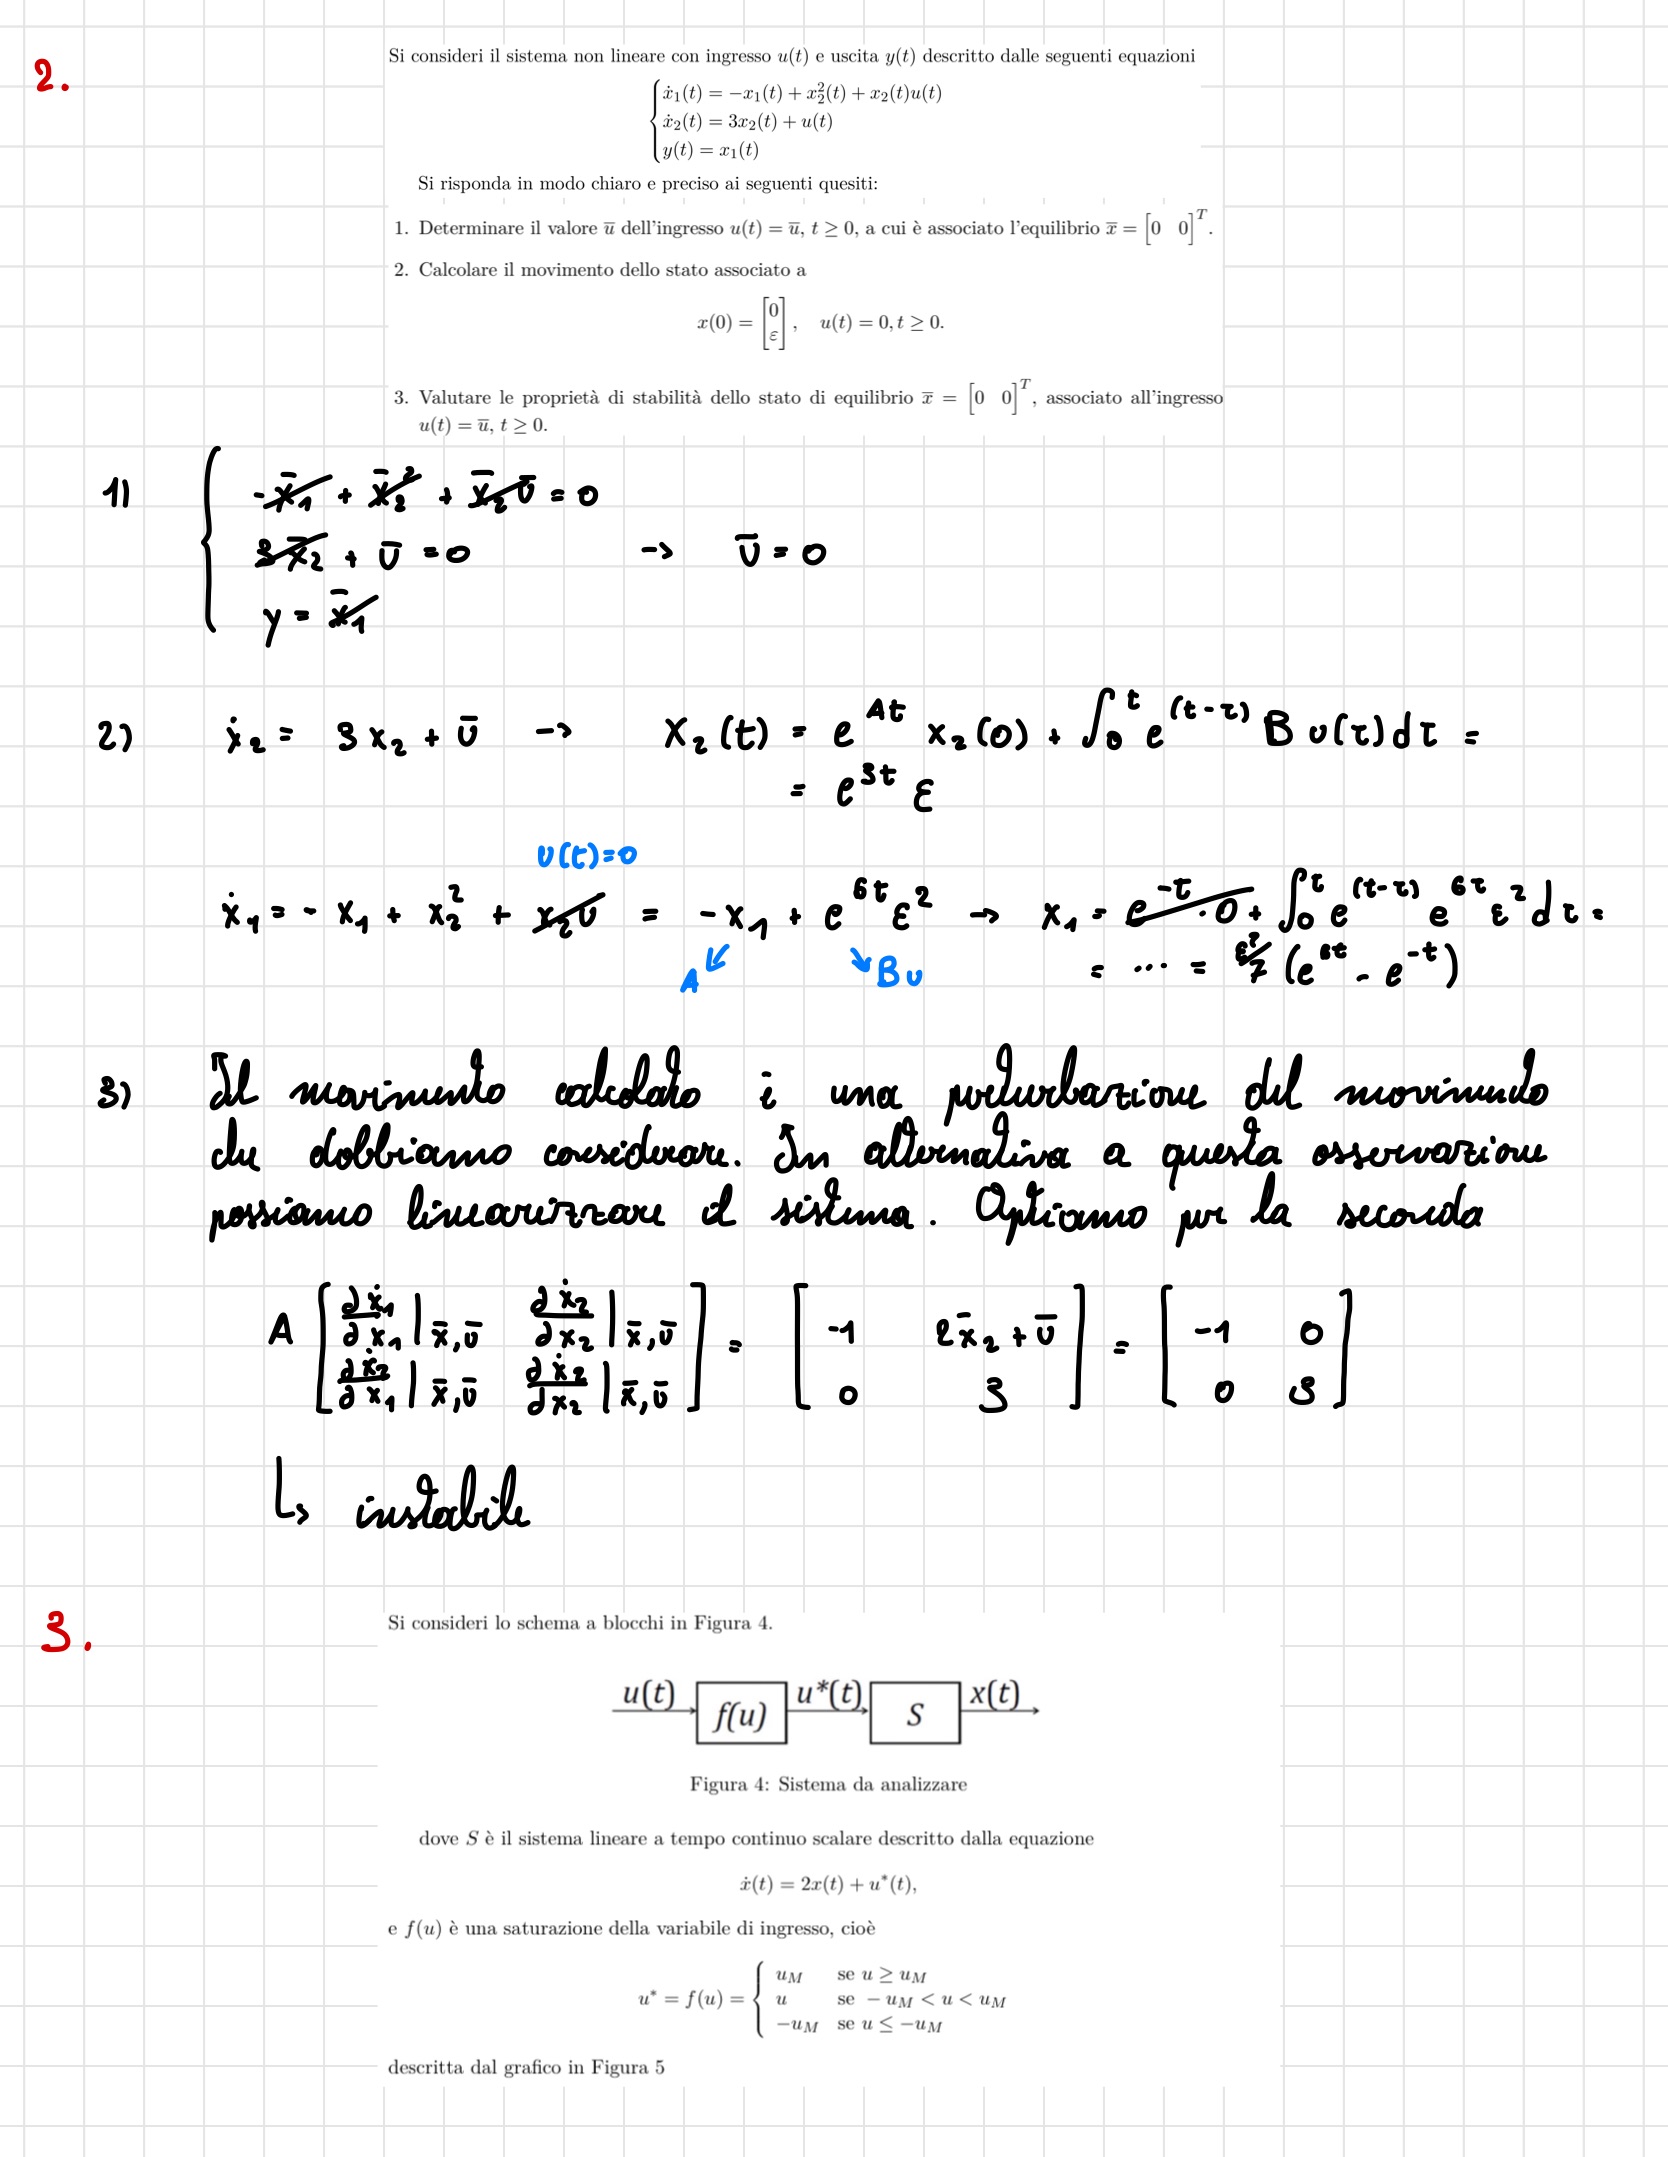 2.
Si consideri il sistema non lineare con ingresso u(t) e uscita y(t) descritto dalle seguenti equazioni
ẋ₁(t) = −x₁(t) + x₂²(t) + x₂(t)u(t)
ẋ₂(t) = 3x₂(t) + u(t)
y(t) = x₁(t)
Si risponda in modo chiaro e preciso ai seguenti quesiti:
1. Determinare il valore u̅ dell'ingresso u(t) = u̅, t ≥ 0, a cui è associato l'equilibrio x̅ = [0 0]ᵀ.
2. Calcolare il movimento dello stato associato a
x(0) = [0 ε], u(t) = 0, t ≥ 0.
3. Valutare le proprietà di stabilità dello stato di equilibrio x̅ = [0 0]ᵀ, associato all'ingresso
u(t) = u̅, t ≥ 0.
1) { -x̅₁ + x̅₂² + x̅₂u̅ = 0
3x̅₂ + u̅ = 0 -> u̅ = 0
y = x̅₁
2) ẋ₂ = 3x₂ + u̅ -> x₂(t) = e^(At) x₂(0) + ∫₀ᵗ e^(t-τ) B u(τ) dτ =
= e^(3t) ε
u(t)=0
ẋ₁ = - x₁ + x₂² + x₂u = -x₁ + e^(6t) ε² -> x₁ = e^(-t) · 0 + ∫₀ᵗ e^(t-τ) e^(6τ) ε² dτ =
A Bu = ... = ε²/7 (e^(6t) - e^(-t))
3) Il movimento calcolato è una perturbazione del movimento
che dobbiamo considerare. In alternativa a questa osservazione
possiamo linearizzare il sistema. Optiamo per la seconda
A [∂ẋ₁/∂x₁ |x̅,u̅ ∂ẋ₂/∂x₂ |x̅,u̅] = [-1 2x̅₂ + u̅] = [-1 0]
[∂ẋ₂/∂x₁ |x̅,u̅ ∂ẋ₂/∂x₂ |x̅,u̅] [0 3] [0 3]
↳ instabile
3.
Si consideri lo schema a blocchi in Figura 4.
u(t) f(u) u*(t) S x(t)
Figura 4: Sistema da analizzare
dove S è il sistema lineare a tempo continuo scalare descritto dalla equazione
ẋ(t) = 2x(t) + u*(t),
e f(u) è una saturazione della variabile di ingresso, cioè
u_M se u ≥ u_M
u* = f(u) = { u se − u_M < u < u_M
−u_M se u ≤ −u_M
descritta dal grafico in Figura 5